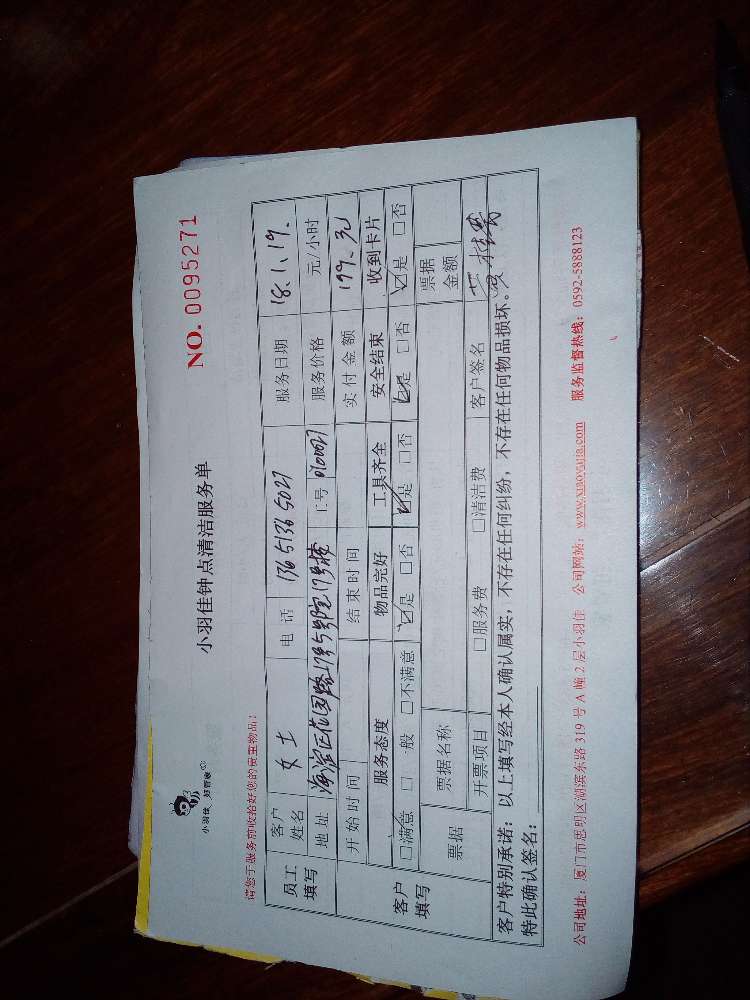 小羽佳 好管家
小羽佳钟点清洁服务单
NO. 0095271
请您于服务前收拾好您的贵重物品：
员工填写 客户姓名 女士 电话 136 5136 5027 服务日期 18.1.19.
地址 海淀区花园路 工号 服务价格 元/小时
开始时间 结束时间 实付金额 199.元
客户填写 服务态度 物品完好 工具齐全 安全结束 收到卡片
□满意 □一般 □不满意 ☑是 □否 ☑是 □否 ☑是 □否 ☑是 □否
票据 票据名称 票据金额
开票项目 □服务费 □清洁费 客户签名
客户特别承诺：以上填写经本人确认属实，不存在任何纠纷，不存在任何物品损坏。
特此确认签名：
公司地址：厦门市思明区湖滨东路 319 号 A 幢 2 层小羽佳 公司网站：www.xiaoyujia.com 服务监督热线：0592-5888123